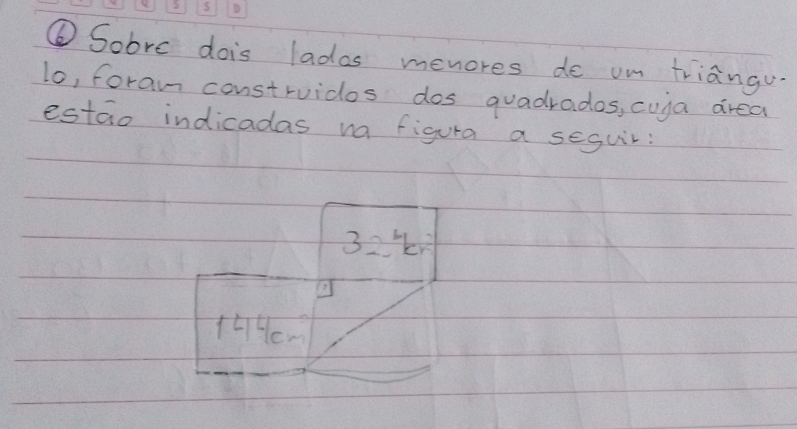 ⑥ Sobre dois lados menores de um triângu-
lo, foram construidos dos quadrados, cuja área
estão indicadas na figura a seguir:
144cm²